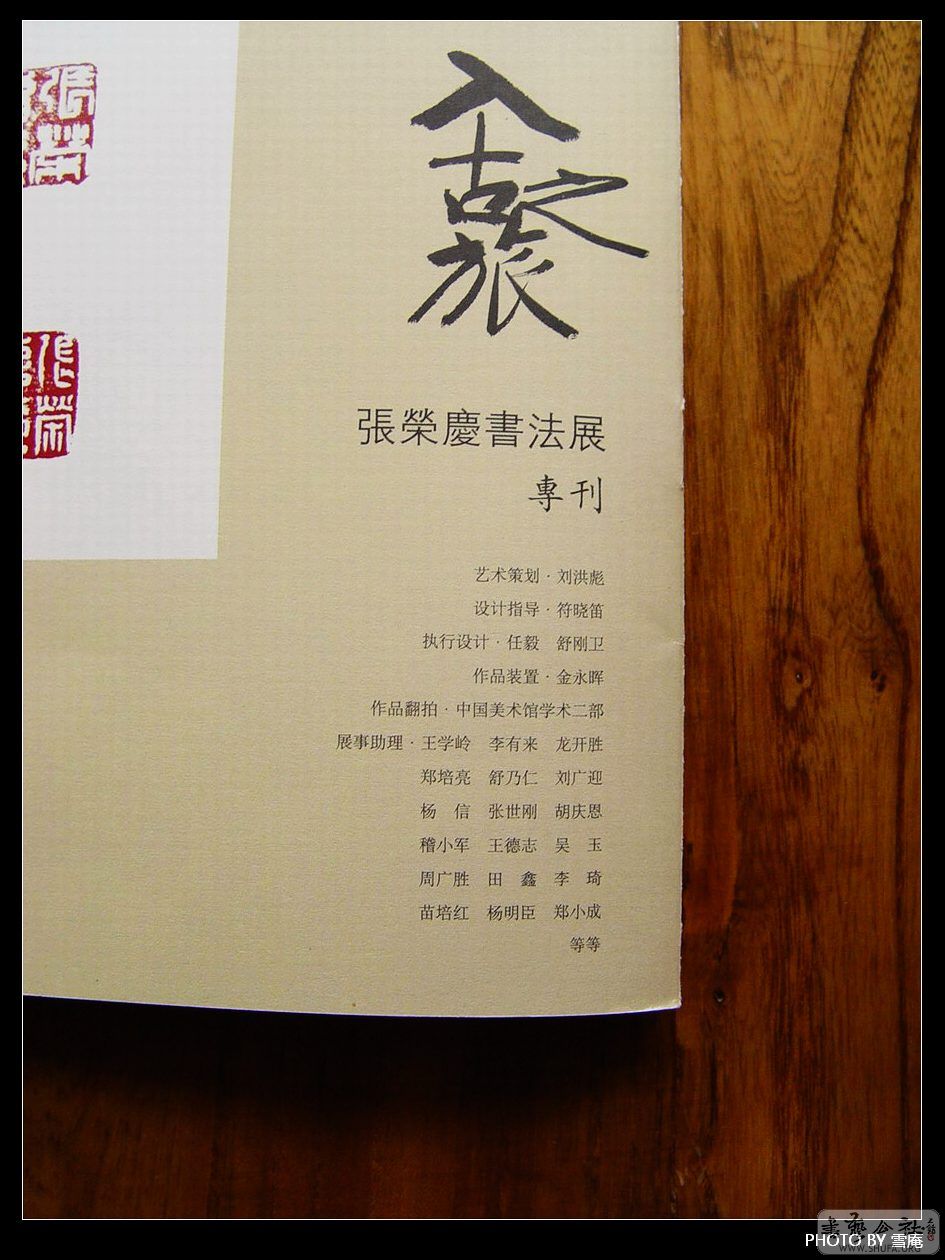 入古之旅
張榮慶書法展
專刊
艺术策划·刘洪彪
设计指导·符晓笛
执行设计·任毅 舒刚卫
作品装置·金永晖
作品翻拍·中国美术馆学术二部
展事助理·王学岭 李有来 龙开胜
郑培亮 舒乃仁 刘广迎
杨 信 张世刚 胡庆恩
稽小军 王德志 吴 玉
周广胜 田 鑫 李 琦
苗培红 杨明臣 郑小成
等等
張榮
作榮
書藝公社
PHOTO BY 雪庵
WWW.SHUFA.ORG